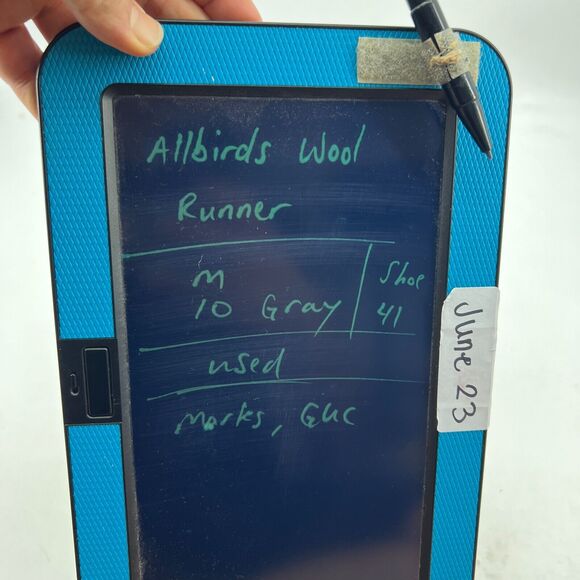 Allbirds Wool
Runner
M
10 Gray
Shoe
41
used
Marks, GUC
June 23